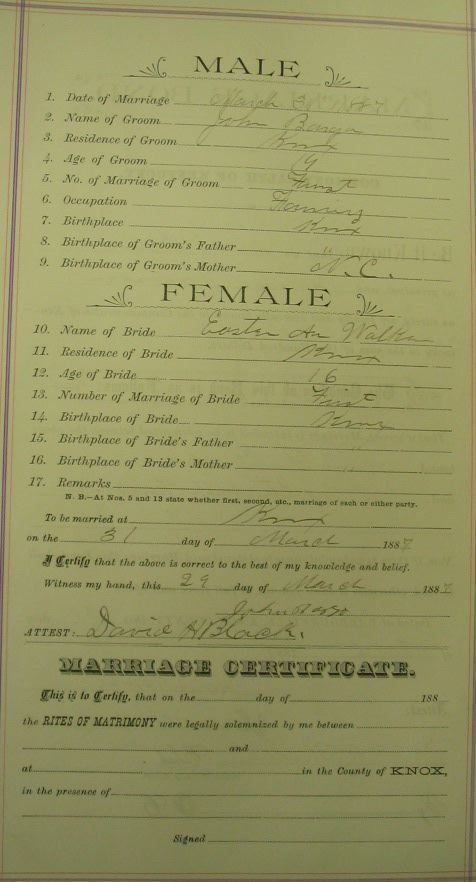 MALE
1. Date of Marriage March 31 1887
2. Name of Groom John
3. Residence of Groom Knox
4. Age of Groom
5. No. of Marriage of Groom First
6. Occupation Farming
7. Birthplace Knox
8. Birthplace of Groom's Father "
9. Birthplace of Groom's Mother N.C.
FEMALE
10. Name of Bride Easter An Walker
11. Residence of Bride Knox
12. Age of Bride 16
13. Number of Marriage of Bride First
14. Birthplace of Bride Knox
15. Birthplace of Bride's Father
16. Birthplace of Bride's Mother
17. Remarks
N. B.—At Nos. 5 and 13 state whether first, second, etc., marriage of each or either party.
To be married at Knox
on the 31 day of March 1887
I Certify that the above is correct to the best of my knowledge and belief.
Witness my hand, this 29 day of March 1887
John
ATTEST: David H Black.
MARRIAGE CERTIFICATE.
This is to Certify, that on the day of 188
the RITES OF MATRIMONY were legally solemnized by me between
and
at in the County of KNOX,
in the presence of
Signed